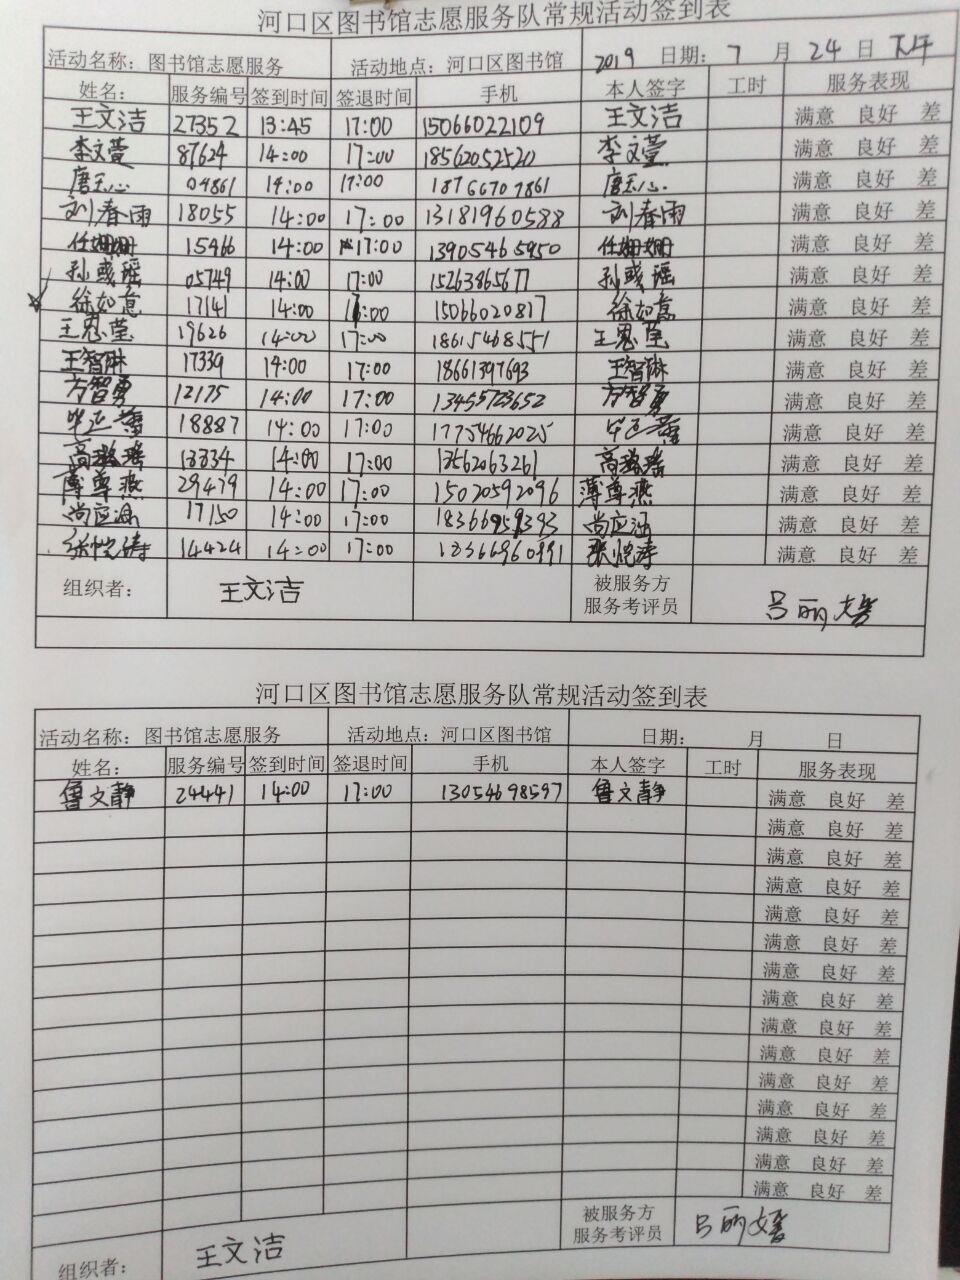 河口区图书馆志愿服务队常规活动签到表
活动名称：图书馆志愿服务 活动地点：河口区图书馆 2019 日期：7 月 24 日 下午
姓名： 服务编号 签到时间 签退时间 手机 本人签字 工时 服务表现
王文洁 27352 13:45 17:00 15066022109 王文洁 满意 良好 差
李文萱 87624 14:00 17:00 18562052520 李文萱 满意 良好 差
唐玉心 04861 14:00 17:00 18766707861 唐玉心 满意 良好 差
刘春雨 18055 14:00 17:00 13181960588 刘春雨 满意 良好 差
任姗姗 15466 14:00 17:00 13905465950 任姗姗 满意 良好 差
孙彧瑶 05749 14:00 17:00 15263865677 孙彧瑶 满意 良好 差
徐如意 17141 14:00 16:00 15066020817 徐如意 满意 良好 差
王思莹 19626 14:00 17:00 18615468551 王思莹 满意 良好 差
王智琳 17339 14:00 17:00 18661397693 王智琳 满意 良好 差
方智勇 12175 14:00 17:00 13455723652 方智勇 满意 良好 差
18887 14:00 17:00 17754662025 满意 良好 差
高 18334 14:00 17:00 13562063261 高 满意 良好 差
薄尊燕 29479 14:00 17:00 15020592096 薄尊燕 满意 良好 差
尚应涵 17150 14:00 17:00 尚应涵 满意 良好 差
张悦涛 14424 14:00 17:00 18366960991 张悦涛 满意 良好 差
组织者： 王文洁 被服务方 吕丽
服务考评员
河口区图书馆志愿服务队常规活动签到表
活动名称：图书馆志愿服务 活动地点：河口区图书馆 日期： 月 日
姓名： 服务编号 签到时间 签退时间 手机 本人签字 工时 服务表现
鲁文静 24441 14:00 17:00 13054698597 鲁文静 满意 良好 差
满意 良好 差
满意 良好 差
满意 良好 差
满意 良好 差
满意 良好 差
满意 良好 差
满意 良好 差
满意 良好 差
满意 良好 差
满意 良好 差
满意 良好 差
满意 良好 差
满意 良好 差
满意 良好 差
组织者： 王文洁 被服务方 吕丽
服务考评员